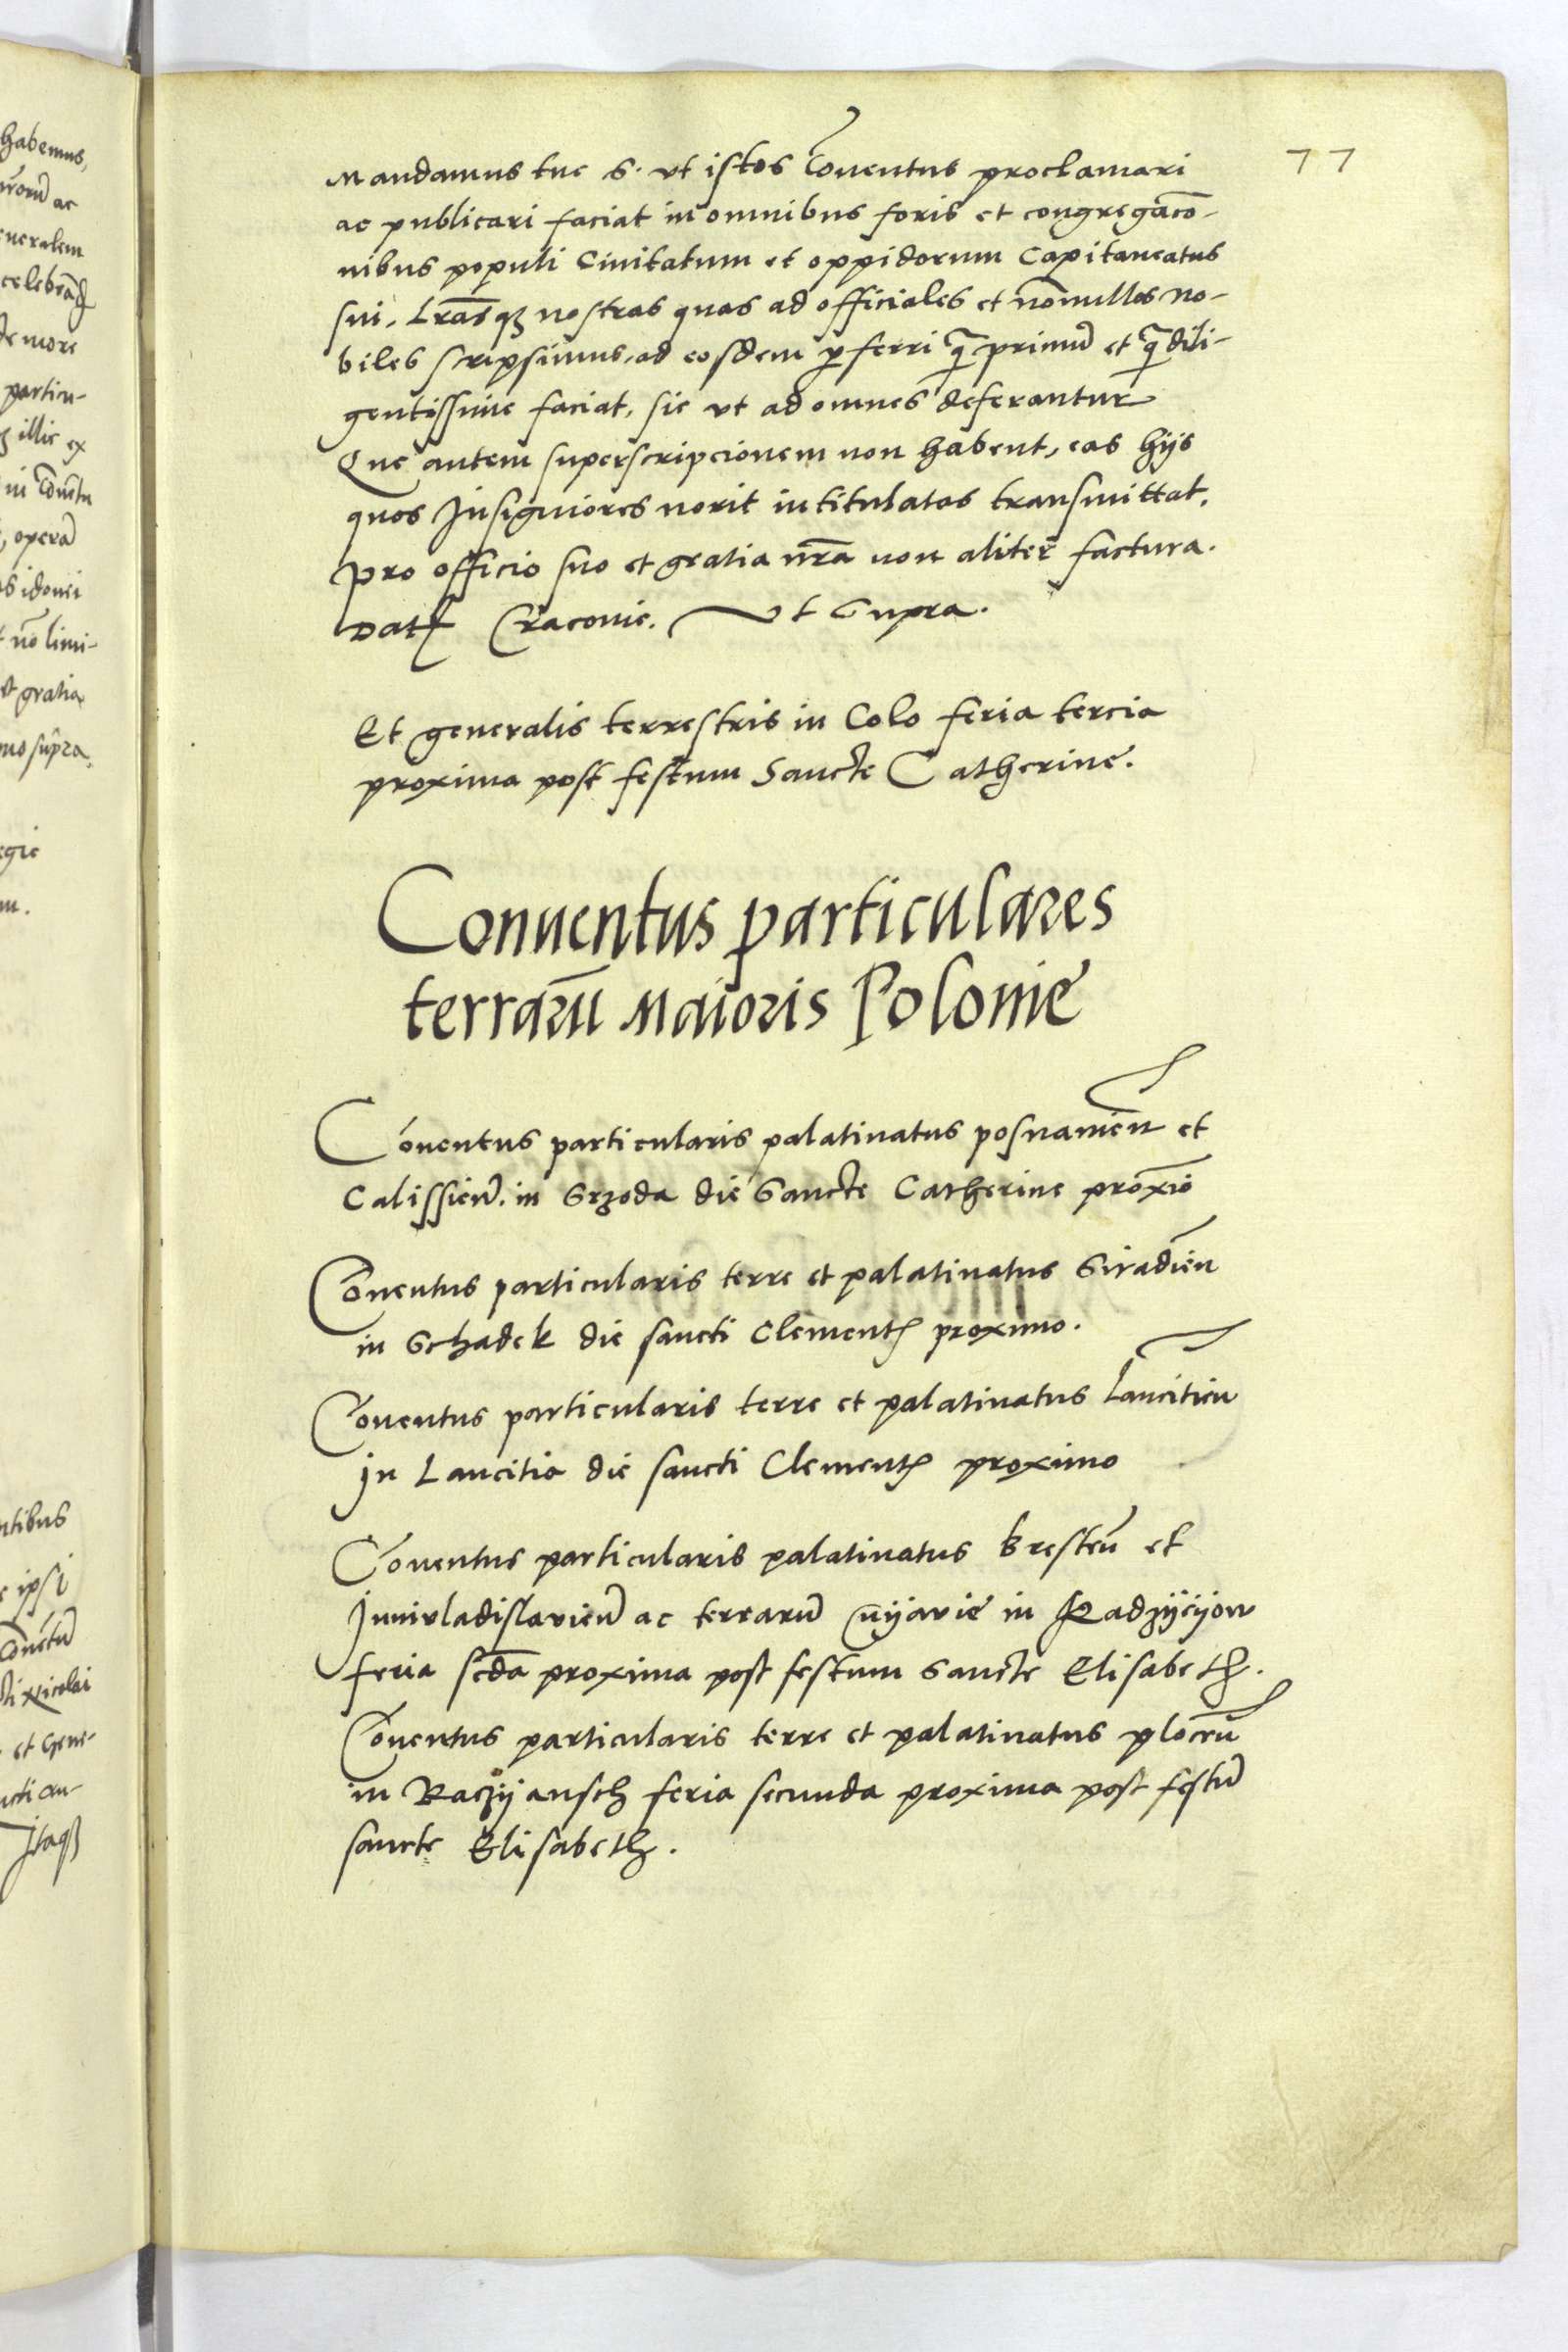 77
Mandamus tue S. vt istos Cōuentus proclamari
ac publicari faciat in omnibus foris et congregac̄o-
nibus populi Ciuitatum et oppidorum Capitaneatus
sui, Lr̄asqꝫ nostras quas ad officiales et nōnullos no-
biles scripsimus, ad eosdem ꝑferri q̄ primū et q̄ dili-
gentissime faciat, sic vt ad omnes deferantur
Que autem superscripcionem non habent, eas hijs
quos Insigniores norit intitulatas transmittat.
pro officio suo et gratia nr̄a non aliter factura.
Datꝭ Cracouie. vt Supra.
Et generalis terrestris in Colo feria tercia
proxima post festum Sancte Catherine.
Conuentus particulares
terrarū Maioris Polonie
Cōuentus particularis palatinatus posnanień et
Calissień. in Srzoda die Sancte Catherine prox̄io
Cōuentus particularis terre et palatinatus Siradień
in Schadek die sancti Clementꝭ proximo.
Cōuentus particularis terre et palatinatus Lanciticń
In Lancitia die sancti Clementꝭ proximo
Cōuentus particularis palatinatus Bresteń et
Iuniuladislauień ac terrarū Cuijavie in Radzijeijow
feria secd̄a proxima post festum Sancte Elisabeth.
Cōuentus particularis terre et palatinatus ploceń
in Raczijansch feria secunda proxima post festū
sancte Elisabeth.